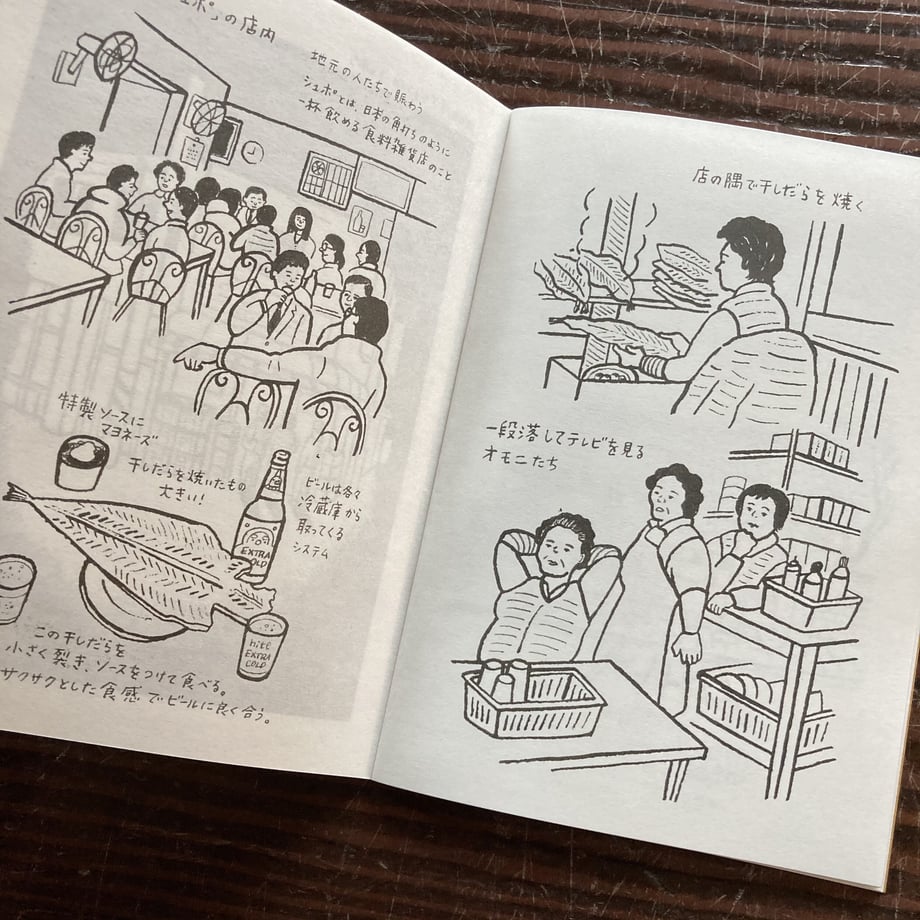 シュポ"の店内
地元の人たちで賑わう
シュポとは、日本の角打ちのように
一杯飲める食料雑貨店のこと
特製ソースに
マヨネーズ
干しだらを焼いたもの
大きい!
ビールは各々
冷蔵庫から
取ってくる
システム
EXTRA
COLD
hite
EXTRA
COLD
この干しだらを
小さく裂き、ソースをつけて食べる。
サクサクとした食感でビールに良く合う。
店の隅で干しだらを焼く
一段落してテレビを見る
オモニたち